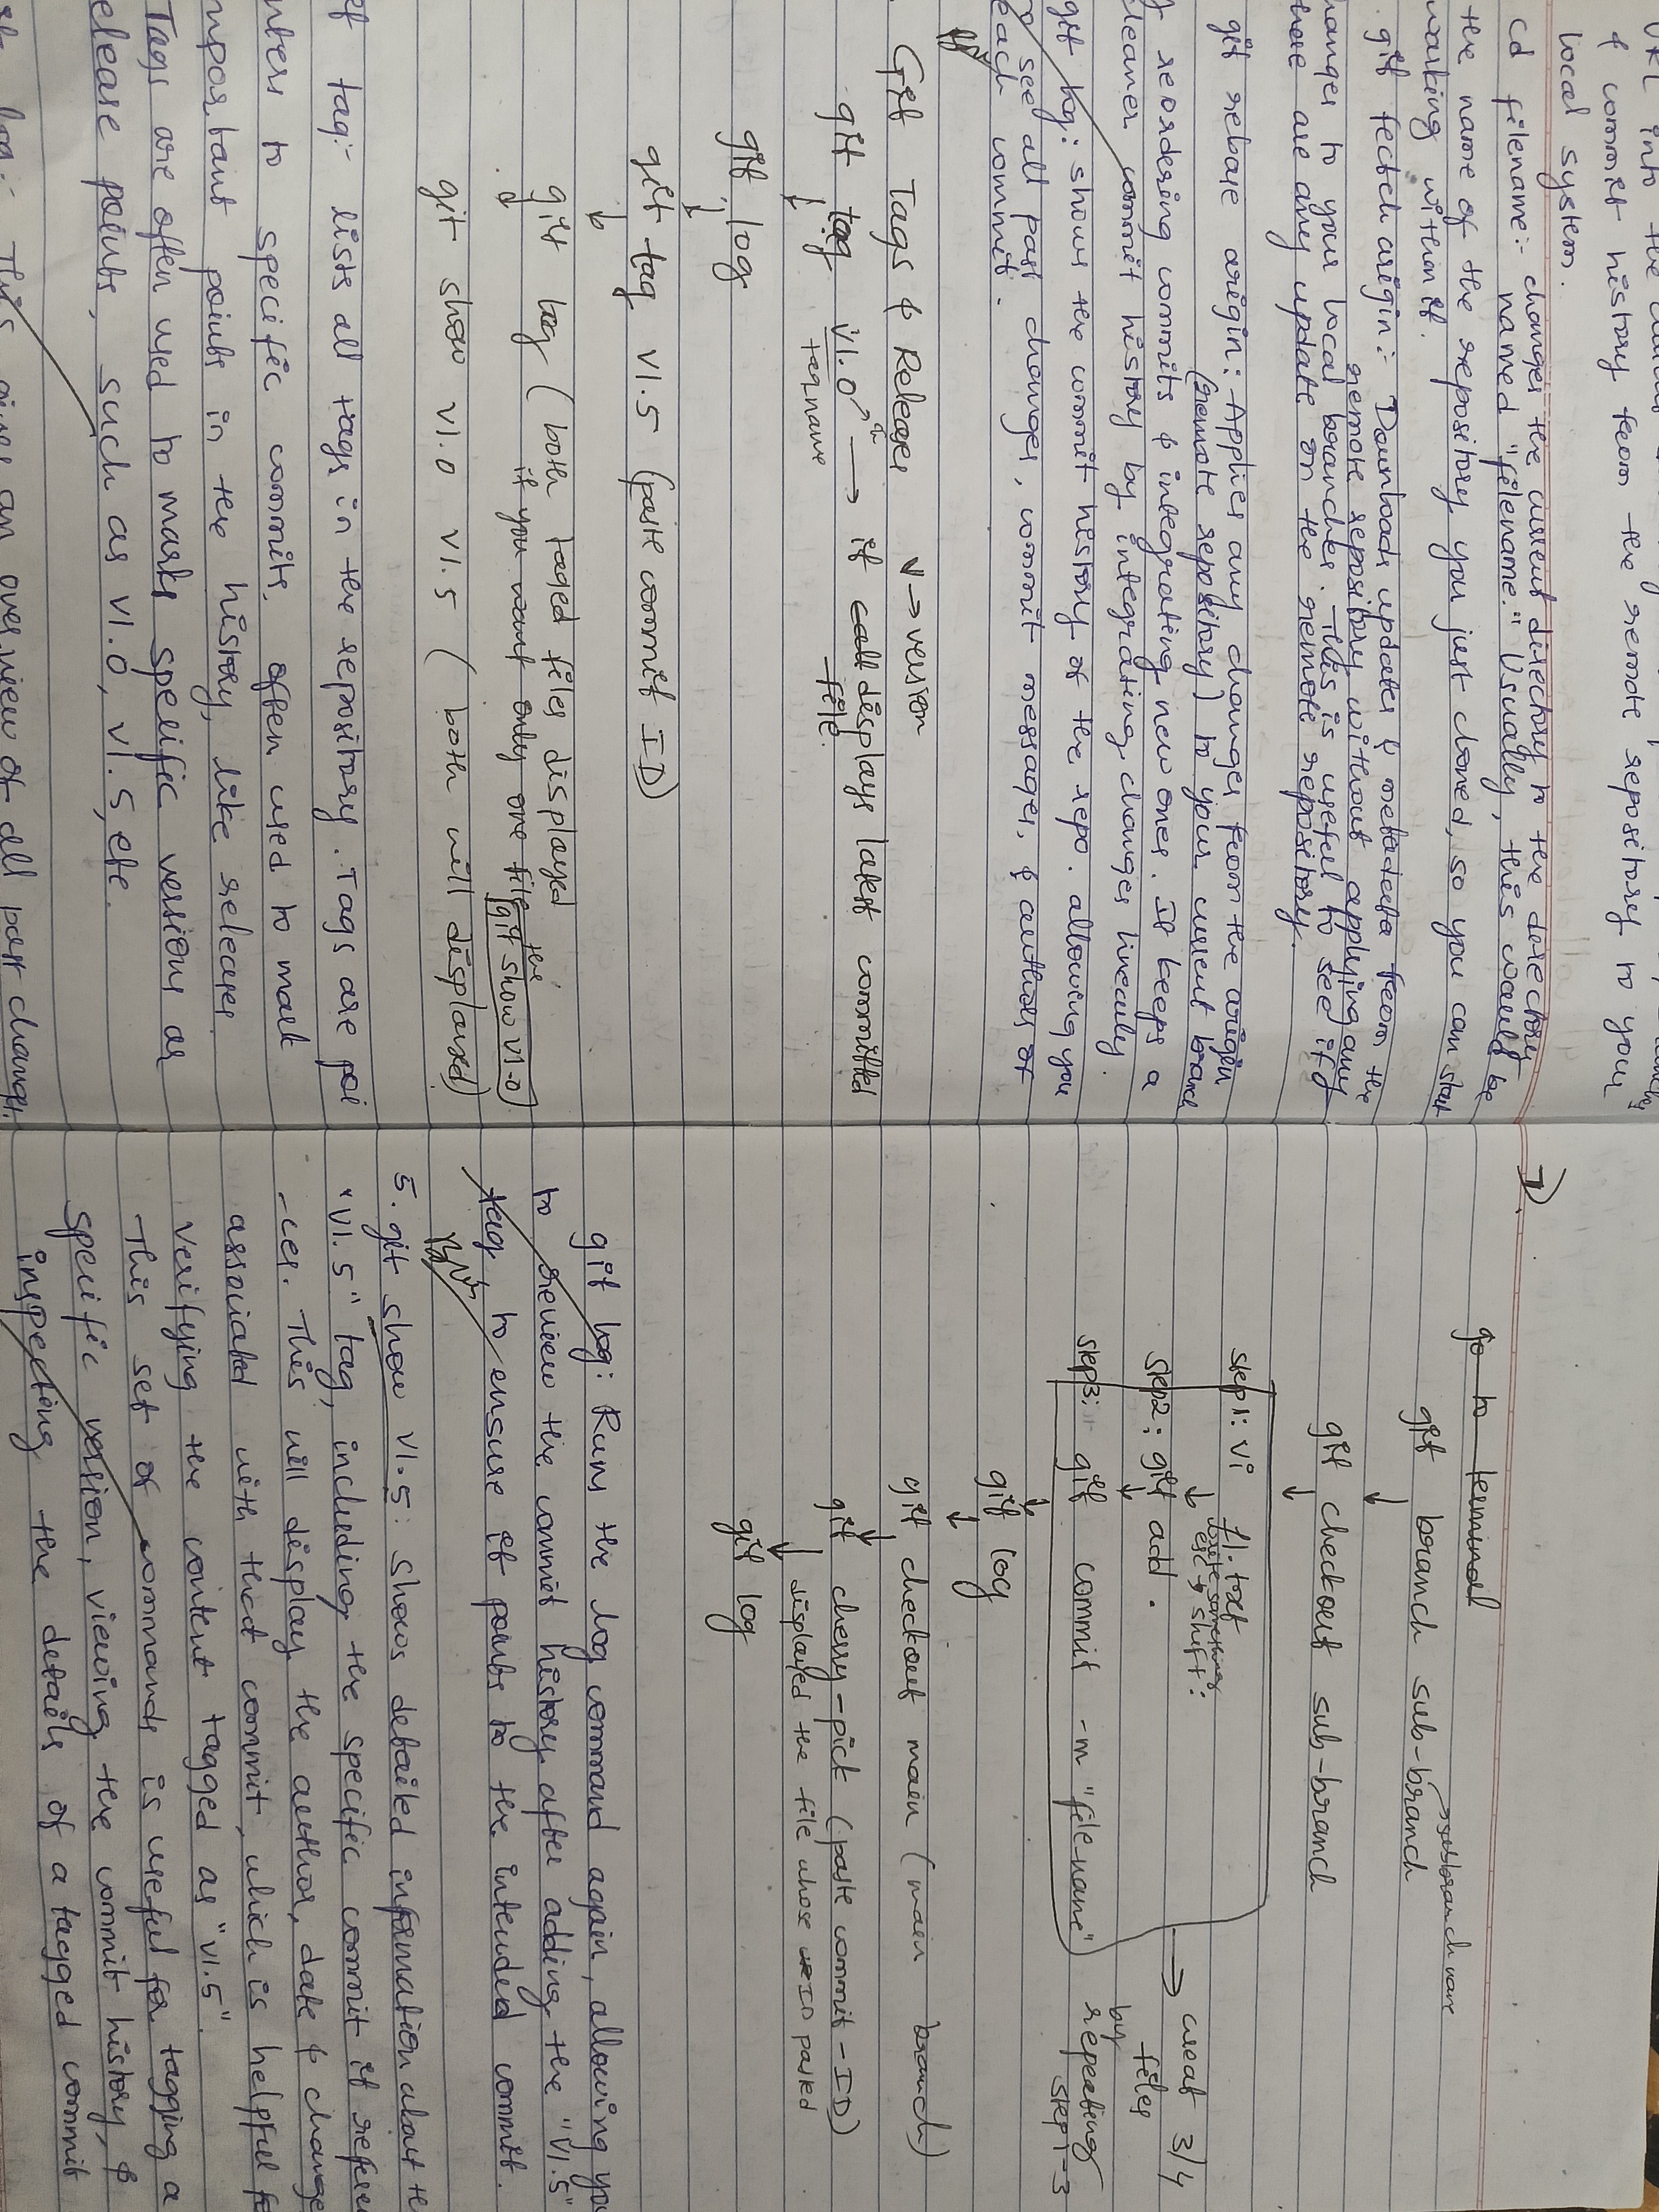 URL into the
& commit history from the remote repository to your
local system.
cd filename:- changes the current directory to the directory
named "filename." Usually, this would be
the name of the repository you just cloned, so you can start
working within it.
git fetch origin:- Downloads updates & metadata from the
remote repository without applying any
changes to your local branches. This is useful to see if
there are any update on the remote repository.
git rebase origin:- Applies any changes from the origin
(remote repository) to your current branch
reordering commits & integrating new ones. It keeps a
cleaner commit history by integrating changes linearly.
git log: shows the commit history of the repo. allowing you
to see all past changes, commit messages, & authors of
each commit.
Git Tags & Releases v → version
git tag v1.0 → it call displays latest committed
tagname file.
↓
git log
↓
git tag v1.5 (paste commit ID)
↓
git tag (both taged files displayed
if you want only one file the git show v1.0)
↓
git show v1.0 v1.5 (both will displayed)
tag:- lists all tags in the repository. Tags are poi
nters to specific commits, often used to mark
important points in the history, like releases
Tags are often used to marks specific versions as
release points, such as v1.0, v1.5, etc.
log:- This gives an overview of all past changes.
7).
go to terminal
git branch sub-branch → subbranch name
↓
git checkout sub-branch
↓
step1: vi f1.txt
↓ write something esc → shift:
step2: git add .
↓
step3: git commit -m "file-name"
→ creat 3/4
files
by
repeating
step1-3
↓
git log
↓
git checkout main (main branch)
↓
git cherry-pick (paste commit-ID)
↓ displayed the file whose ID pasted
git log
git log: Runs the log command again, allowing you
to review the commit history after adding the "v1.5"
tag to ensure it points to the intended commit.
5. git show v1.5: shows detailed information about the
"v1.5" tag, including the specific commit it referen
-ces. This will display the author, date & changes
associated with that commit, which is helpful for
verifying the content tagged as "v1.5".
This set of commands is useful for tagging a
specific version, viewing the commit history, &
inspecting the details of a tagged commit